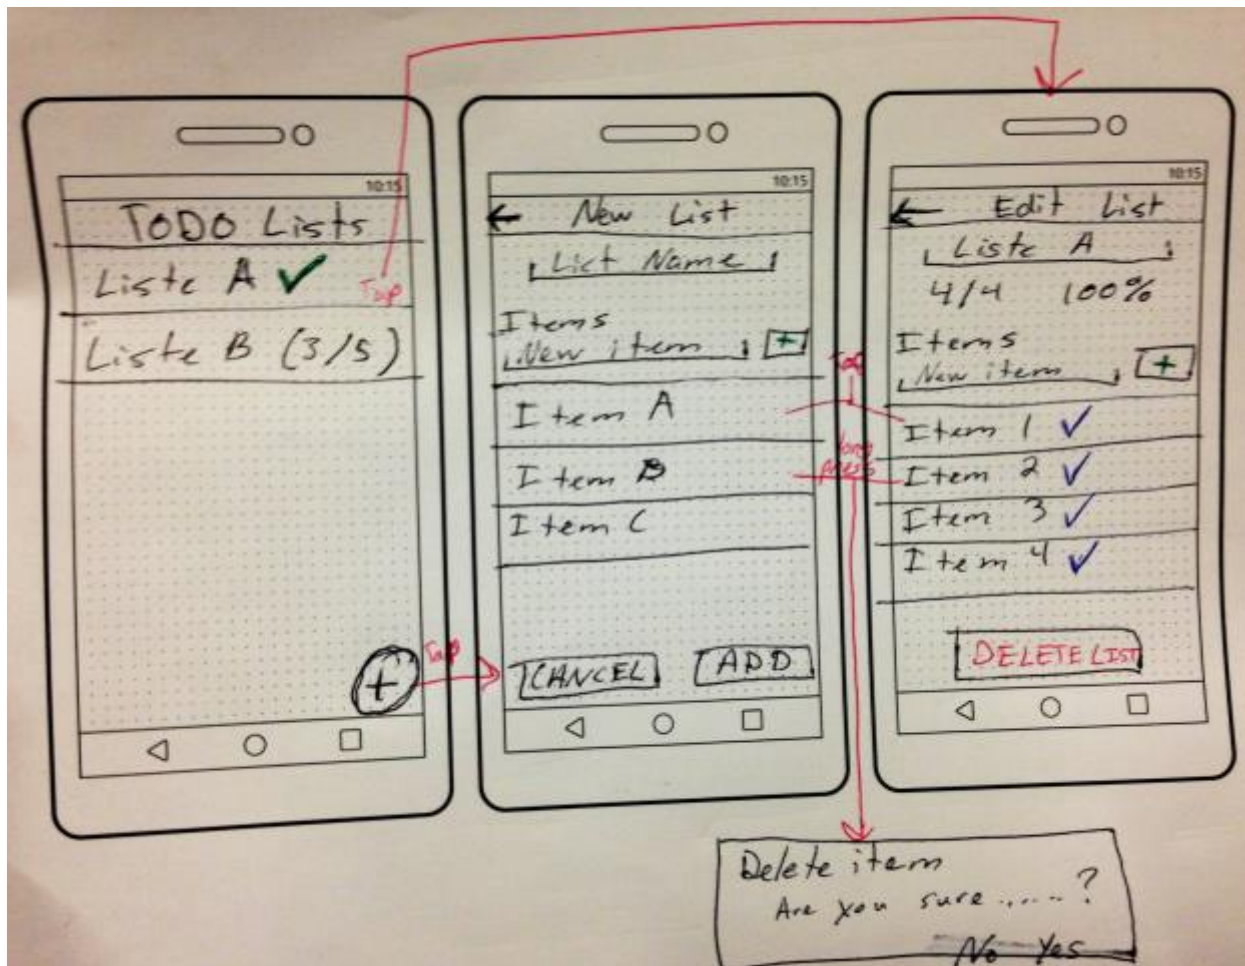 10:15
TODO Lists
Liste A ✓
Tap
Liste B (3/5)
+
Tap
10:15
← New List
List Name
Items
New item +
Item A
Item B
Item C
CANCEL ADD
Tap
long
press
10:15
← Edit List
Liste A
4/4 100%
Items
New item +
Item 1 ✓
Item 2 ✓
Item 3 ✓
Item 4 ✓
DELETE LIST
Delete item
Are you sure ......?
No Yes